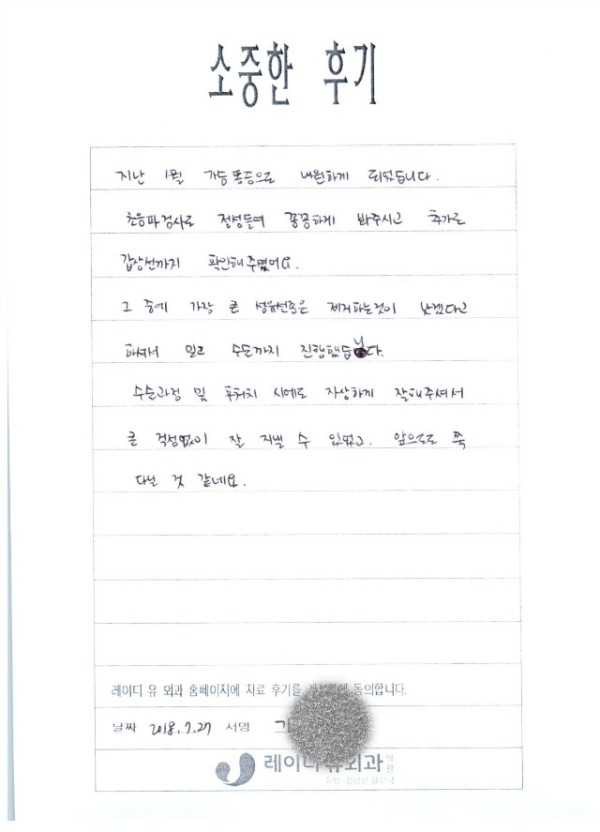 소중한 후기
지난 1월 가슴통증으로 내원하게 되었습니다.
초음파검사로 정성들여 꼼꼼하게 봐주시고 추가로
갑상선까지 확인해주셨어요.
그 중에 가장 큰 섬유선종은 제거하는것이 낫겠다고
하셔서 믿고 수술까지 진행했습니다.
수술과정 및 후처치 시에도 자상하게 잘해주셔서
큰 걱정없이 잘 지낼 수 있었고. 앞으로도 쭉
다닐 것 같네요.
레이디 유 외과 홈페이지에 치료 후기를 동의합니다.
날짜 2018.7.27 서명
레이디유외과